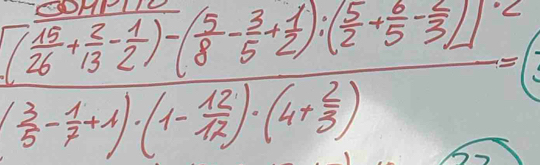 [(15/26 + 2/13 - 1/2) - (5/8 - 3/5 + 1/2) : (5/2 + 6/5 - 2/3)] · 2
=
(3/5 - 1/7 + 1) · (1 - 12/17) · (4 + 2/3)